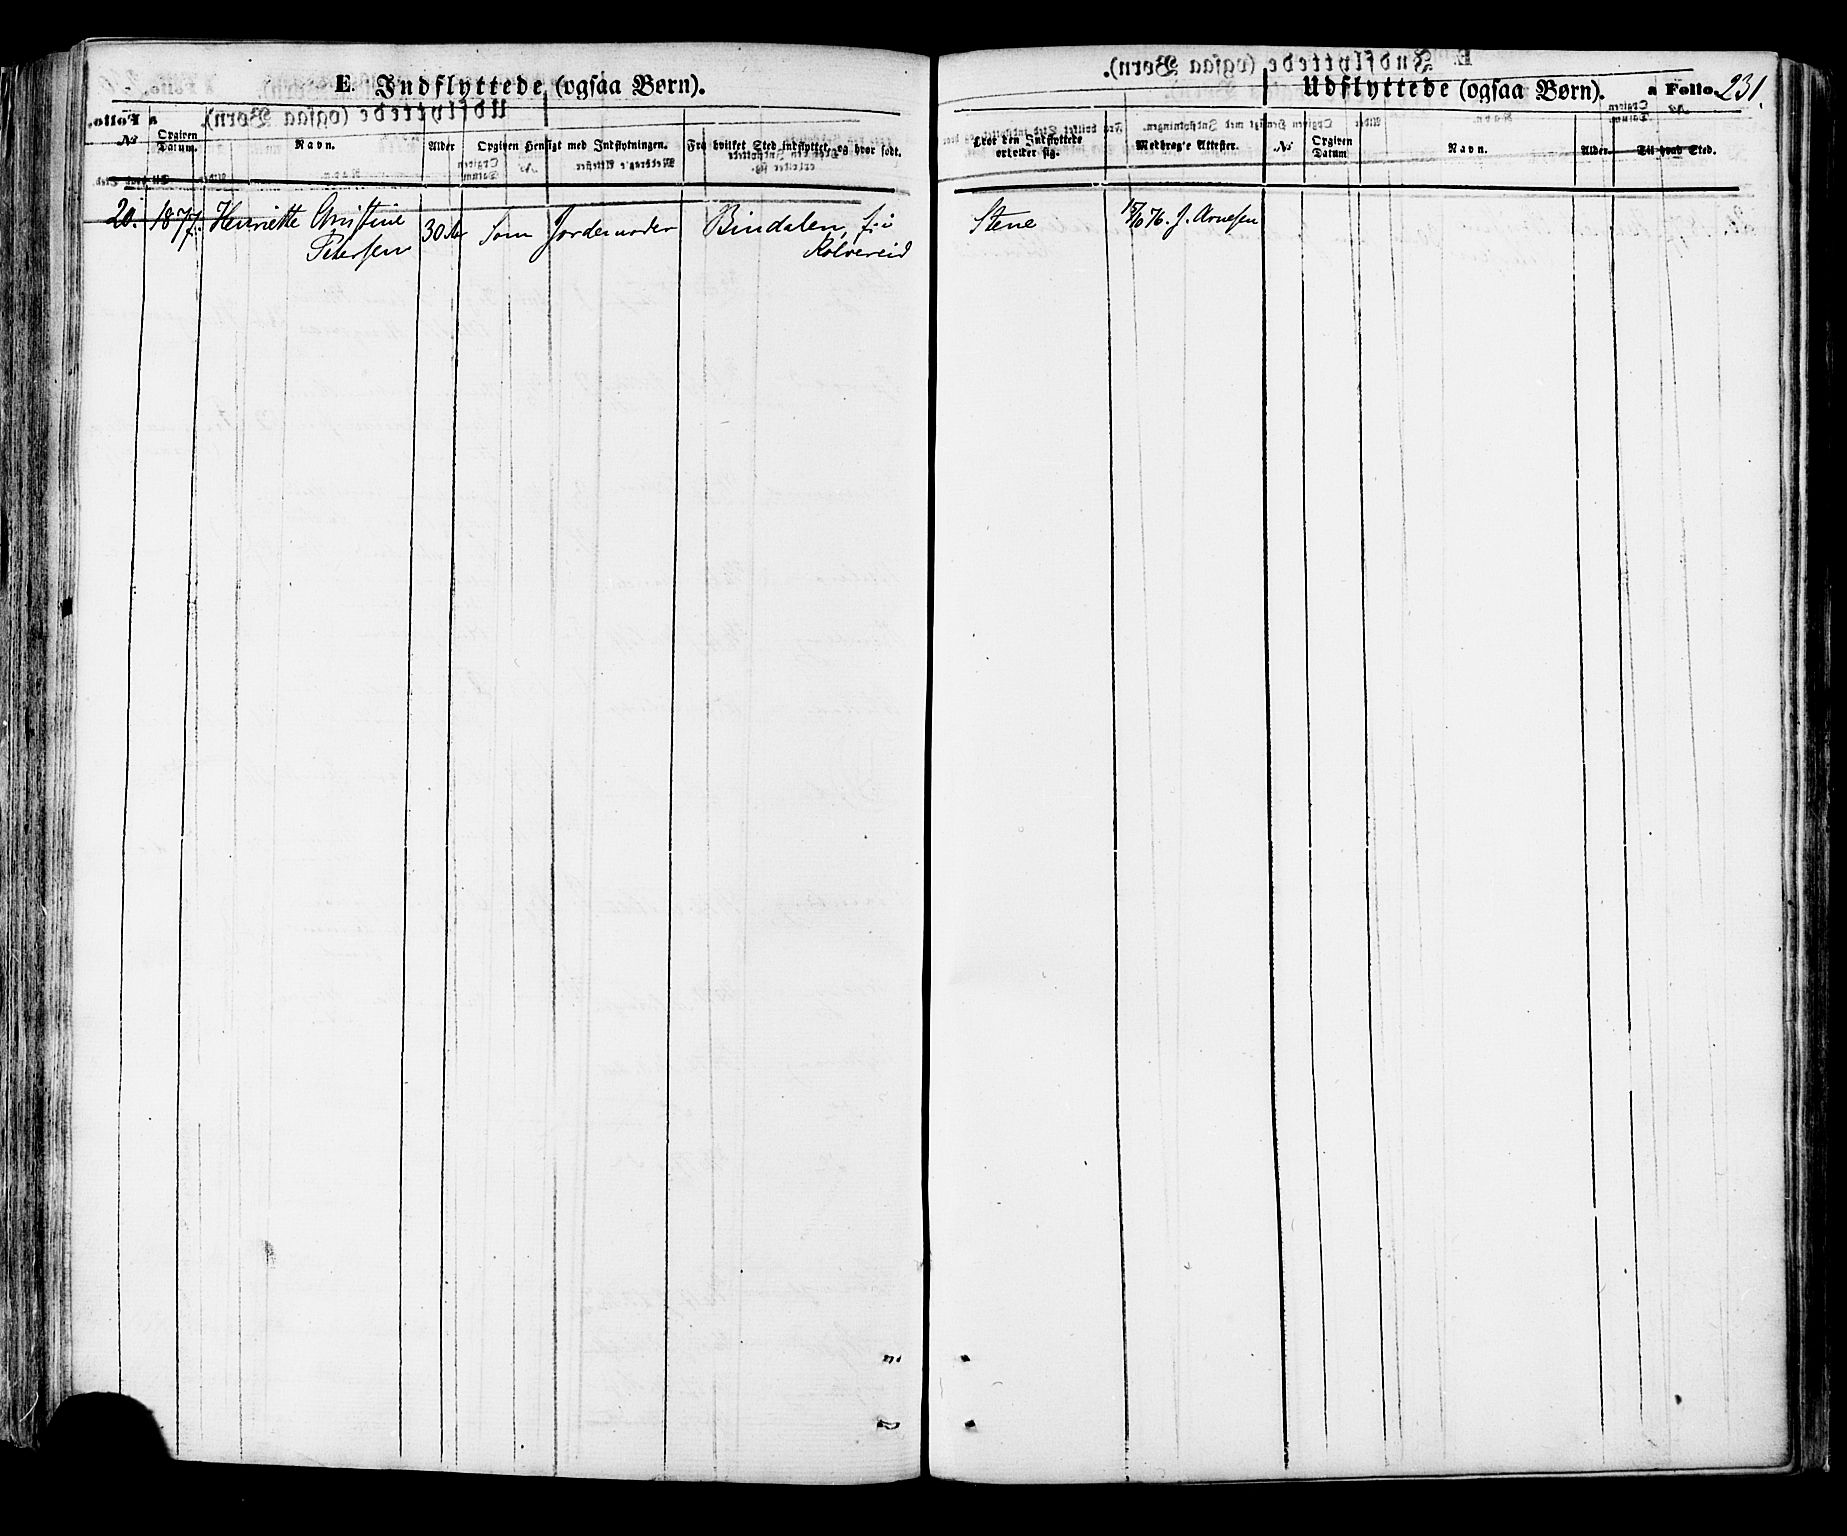 E. Indflyttede (ogsaa Børn).
Udflyttede (ogsaa Børn). a Folio 231.
No Opgiven Datum. Navn. Alder Opgiven Hensigt med Indflytningen. Fra hvilket Sted indflyttet, og hvor født.
Hvor den Indflyttede ertviker sig. Medbragte Attester. No Opgiven Datum Navn. Alder Til hvad Sted.
20. 1877. Henriette Christine 30 Aar Som Jordemoder Bindalen, f. i Stene 15/10 76. J. Arnesen
Petersen Kolvereid